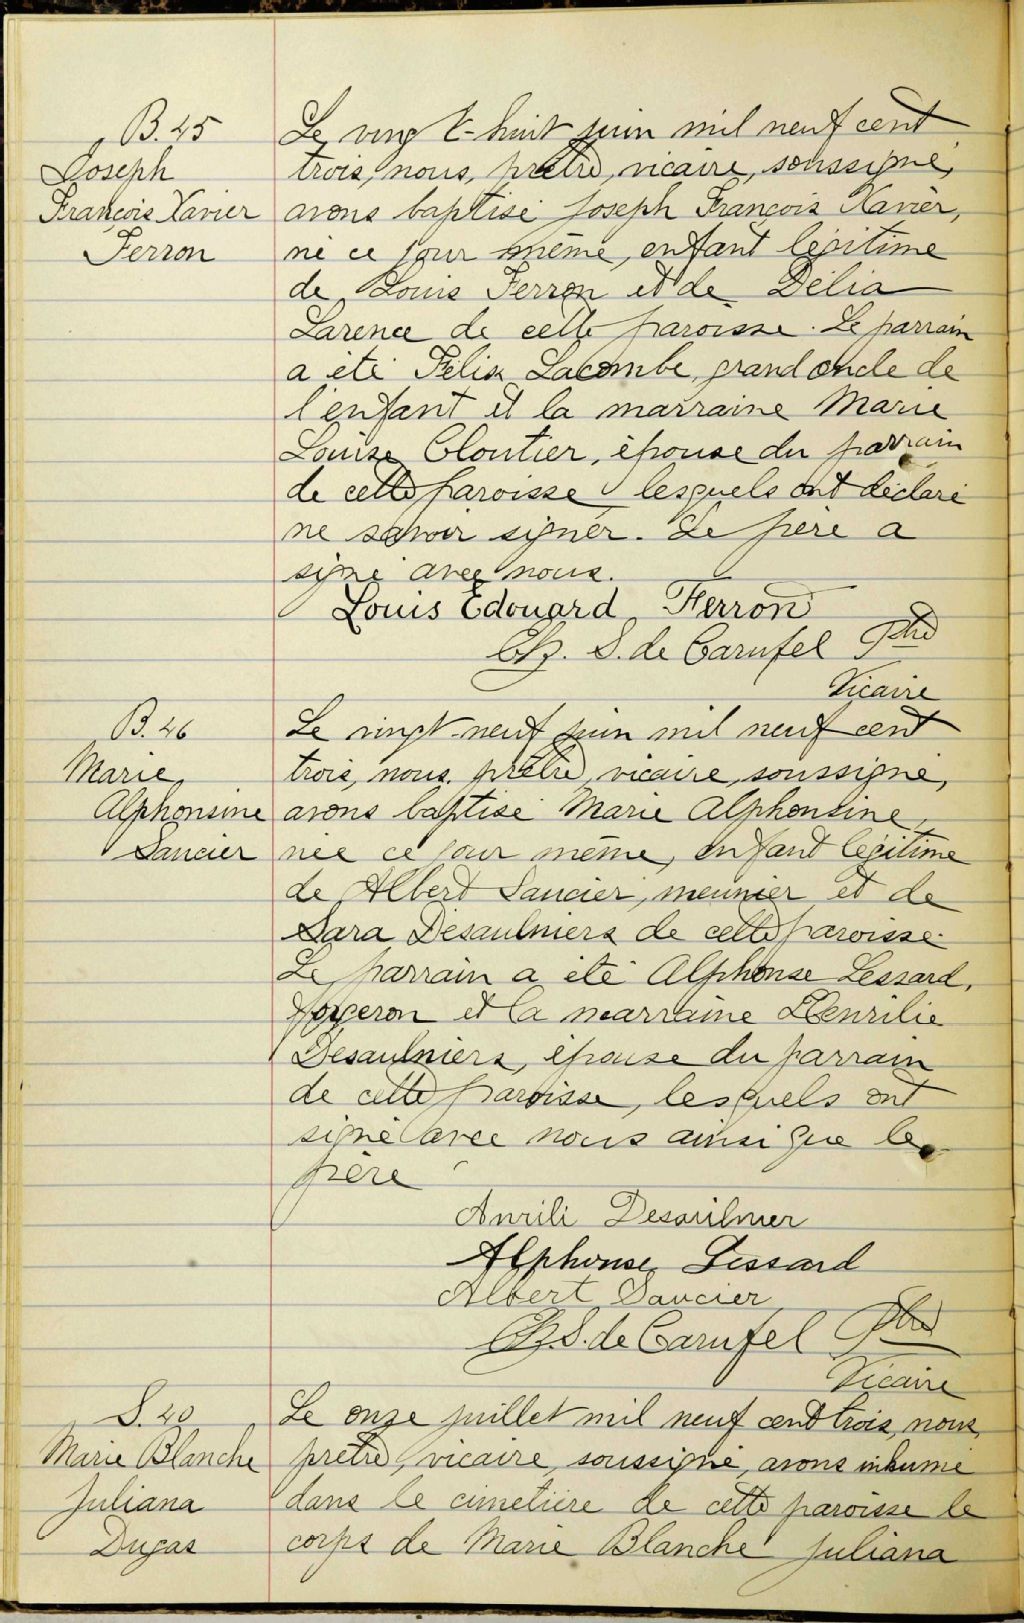 B. 45
Joseph
François Xavier
Ferron
Le vingt-huit juin mil neuf cent
trois, nous, prêtre, vicaire, soussigné,
avons baptisé Joseph François Xavier,
né ce jour même, enfant légitime
de Louis Ferron et de Délia
Larence de cette paroisse. Le parrain
a été Félix Lacombe, grand oncle de
l'enfant et la marraine Marie
Louise Cloutier, épouse du parrain
de cette paroisse lesquels ont déclaré
ne savoir signer. Le père a
signé avec nous.
Louis Edouard Ferron
Ch. S. de Carufel Ptre
Vicaire
B. 46
Marie
Alphonsine
Saucier
Le vingt-neuf juin mil neuf cent
trois, nous, prêtre, vicaire, soussigné,
avons baptisé Marie Alphonsine,
née ce jour même, enfant légitime
de Albert Saucier, meunier et de
Sara Désaulniers de cette paroisse.
Le parrain a été Alphonse Lessard,
forgeron et la marraine Henrilie
Desaulniers, épouse du parrain
de cette paroisse, lesquels ont
signé avec nous ainsi que le
père
Anrili Desaulnier
Alphonse Lessard
Albert Saucier
Ch. S. de Carufel Ptre
Vicaire
S. 40
Marie Blanche
Juliana
Dugas
Le onze juillet mil neuf cent trois, nous,
prêtre, vicaire, soussigné, avons inhumé
dans le cimetière de cette paroisse le
corps de Marie Blanche Juliana